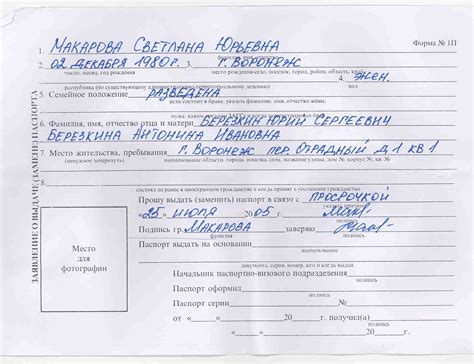 Форма № 1П
ЗАЯВЛЕНИЕ О ВЫДАЧЕ (ЗАМЕНЕ) ПАСПОРТА
1. МАКАРОВА СВЕТЛАНА ЮРЬЕВНА
2. 02 ДЕКАБРЯ 1980 г. 3. г. ВОРОНЕЖ
число, месяц, год рождения место рождения-село, поселок, город, район, область, край,
республика (по существующему 4. жен.
5. Семейное положение РАЗВЕДЕНА
если состоит в браке, указать фамилию, имя, отчество жены,
6. Фамилия, имя, отчество отца и матери БЕРЕЗКИН ЮРИЙ СЕРГЕЕВИЧ
БЕРЕЗКИНА АНТОНИНА ИВАНОВНА
7. Место жительства, пребывания г. ВОРОНЕЖ пер. ОТРАДНЫЙ д. 1 КВ 1
(ненужное зачеркнуть) наименование области, города, поселка, села, название улицы, дом №, корпус №, кв. №
8.
состоял ли ранее в иностранном гражданстве и когда принят в российское гражданство
Прошу выдать (заменить) паспорт в связи с ПРОСРОЧКОЙ
«25» ИЮЛЯ 2005 г.
подпись
Подпись гр. МАКАРОВА заверяю
фамилия подпись
Место
для
фотографии
Паспорт выдать на основании
документа, серия, номер, кем и когда выдан
Начальник паспортно-визового подразделения
Паспорт оформил
подпись
Паспорт серии №
от « » 20 г. получил(а)
« » 20 г.
подпись